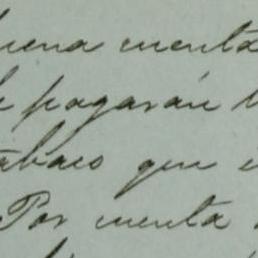 buena cuenta
pagarán
tabaco que
Por cuenta